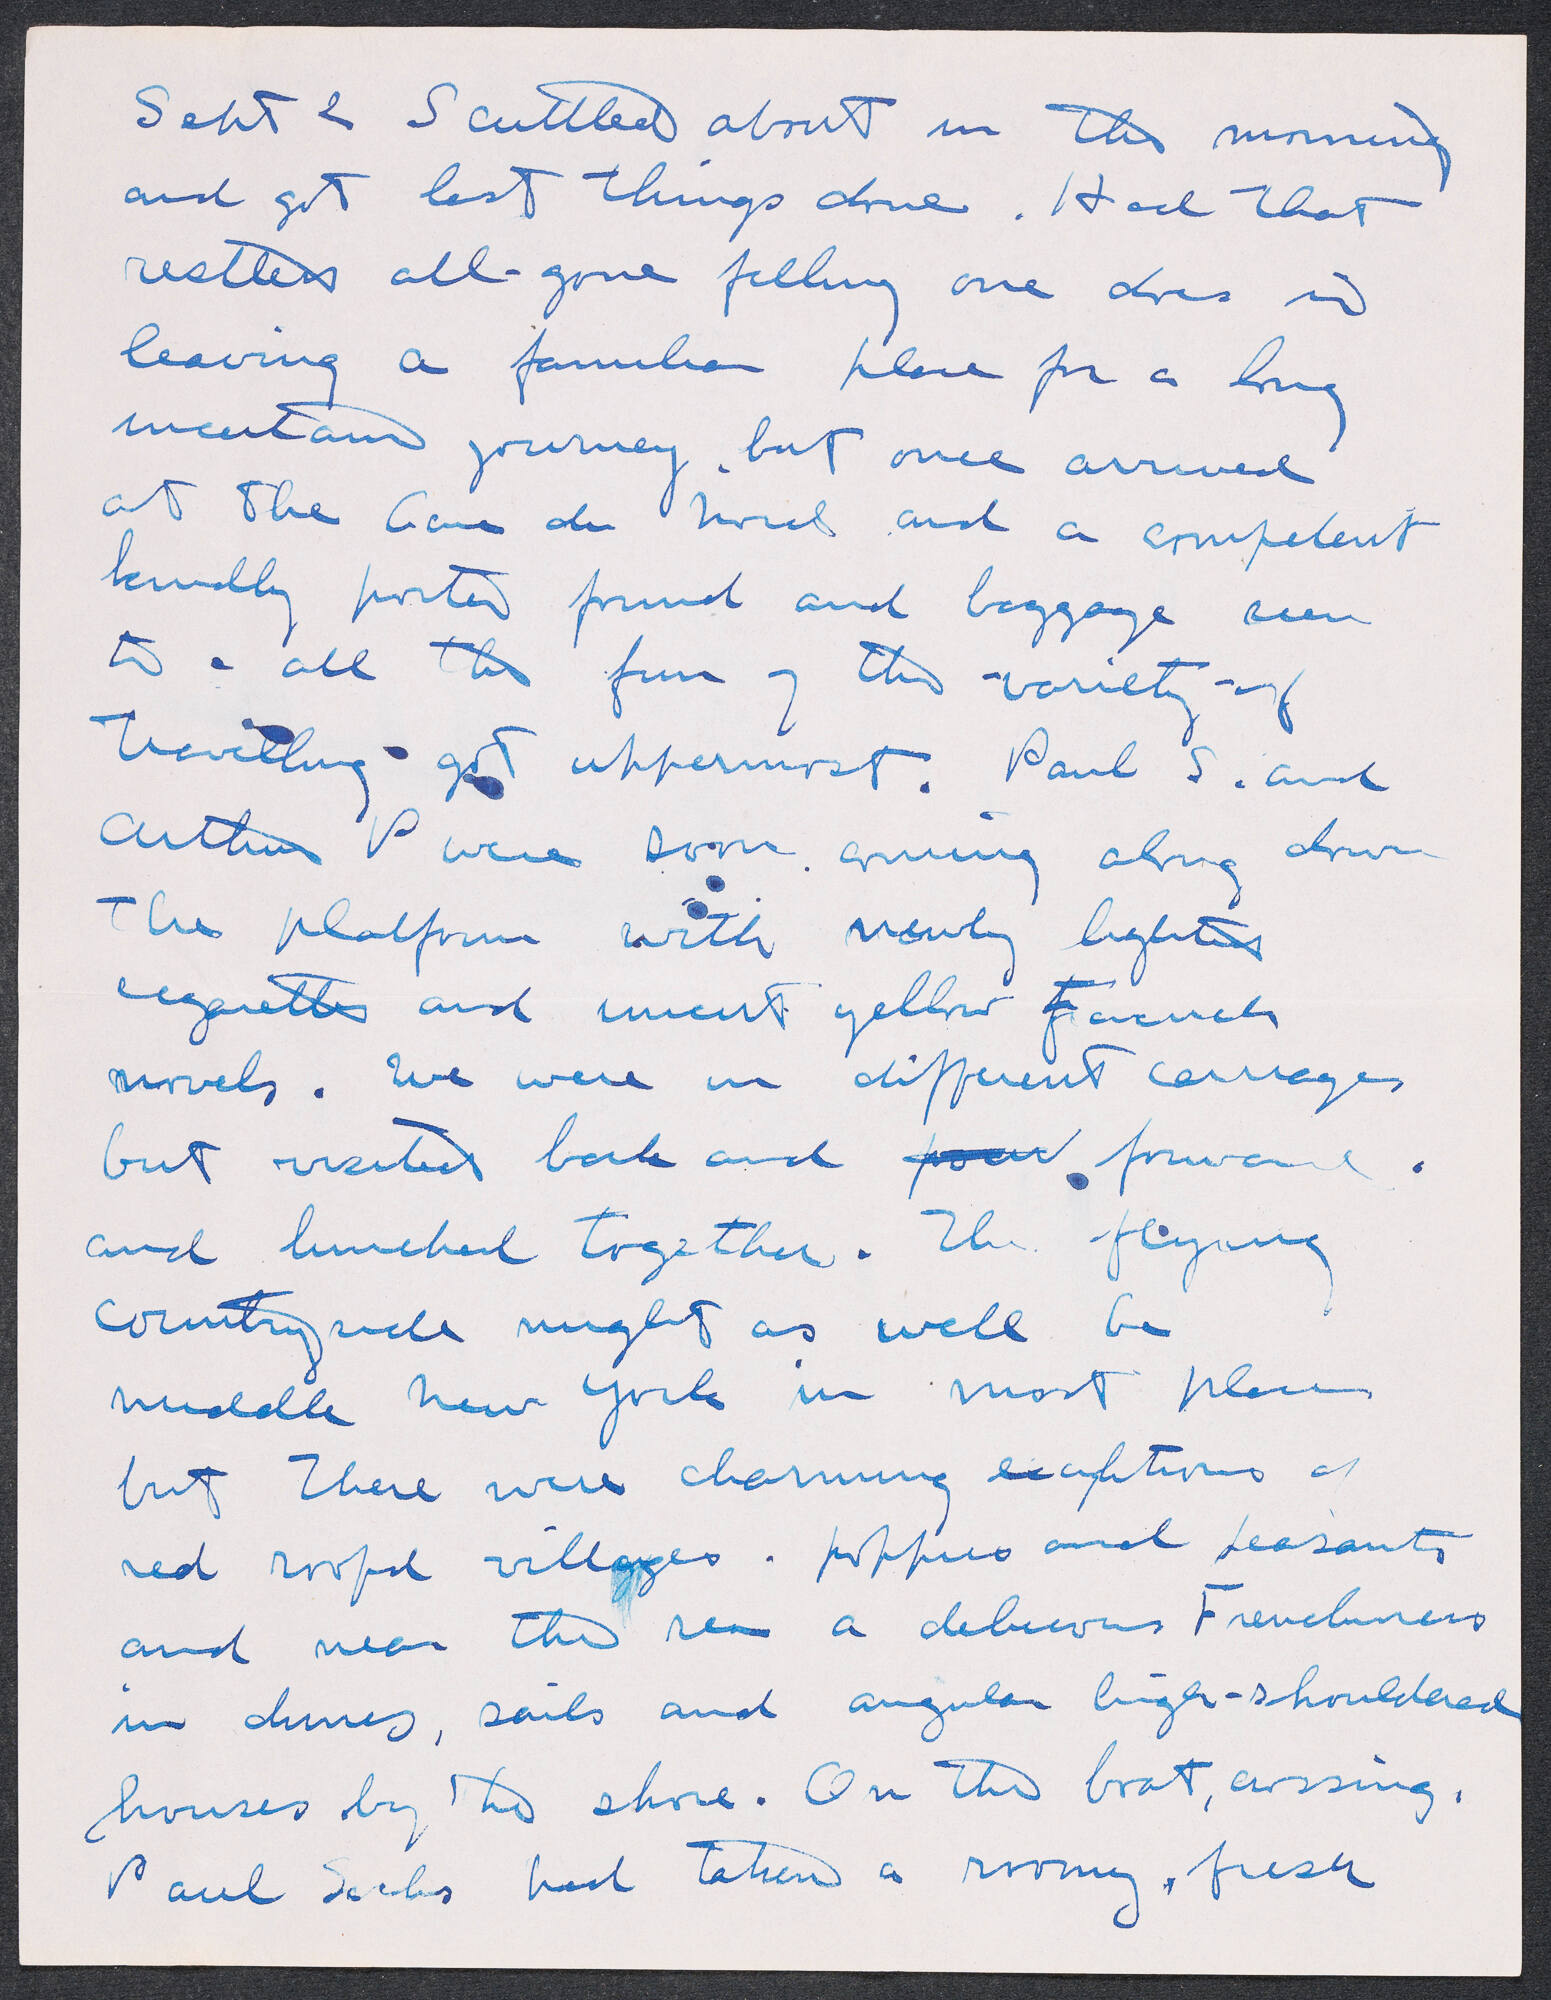 Sept 2 Scuttled about in the morning
and got last things done. Had that
restless all-gone felling one does in
leaving a familiar place for a long
uncertain journey, but once arrived
at the Gare du Nord and a competent
kindly porter found and baggage seen
to - all the fun of the -variety-of
travelling- got uppermost. Paul S. and
Arthur P were soon coming along down
the platform with newly lighted
cigarettes and uncut yellow French
novels. We were in different carriages
but visited back and forward.
and lunched together. The flying
countryside might as well be
middle New York in most places
but there were charming exceptions of
red roofed villages. poppies and peasants
and near the sea a delicious Frenchness
in dunes, sails and angular high-shouldered
houses by the shore. On the boat, crossing,
Paul Sachs had taken a roomy, fresh